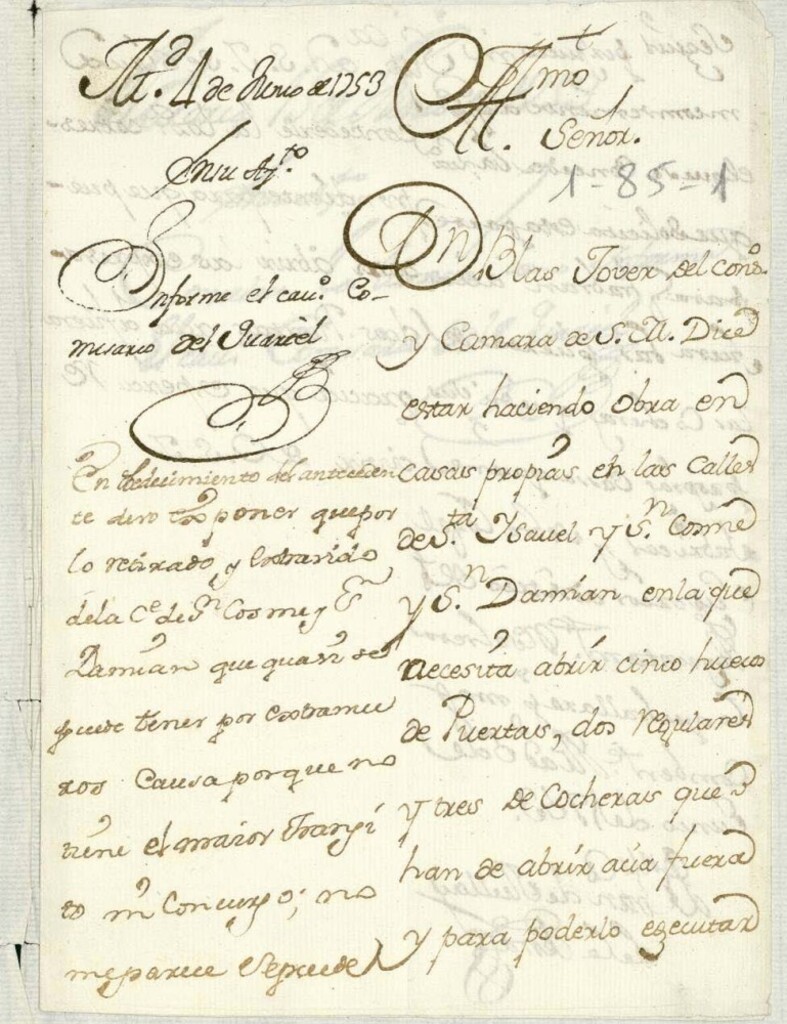 M.d 4 de Junio de 1753
En su Ay.to
Informe el cav.o Co-
misario del Quartel
En obedecimiento del anteceden
te devo exponer que por
lo retirado, y extraviado
de la C.e de S.n Cosme y S.n
Damian que quasi se
puede tener por extramu
ros causa porque no
tiene el maior transi
to ni concurso; no
me parece se precede
Ill.mo
Señor.
1-85-1
Dn. Blas Jover del cons.o
y Camara de S. M. Dice
estar haciendo obra en
casas propias en las Calles
de S.ta Ysavel y S.n Cosme
y S.n Damian en la que
necesita abrir cinco huecos
de Puertas, dos regulares
y tres de Cocheras que
han de abrir acia fuera
y para poderlo egecutar